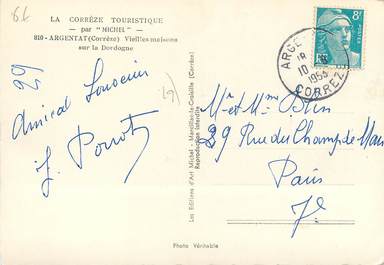 LA CORRÈZE TOURISTIQUE
— par "MICHEL" —
810 - ARGENTAT (Corrèze) Vieilles maisons
sur la Dordogne
29
Amical Souvenir
J. Porrot
Les Editions d'Art Michel - Marcillac-la-Croisille (Corrèze)
Reproduction interdite
Photo Véritable
ARGENTAT
18
10
1953
CORREZE
8F
RF
Mr et Mme
29 Rue du Champ de Mars
Paris
7e